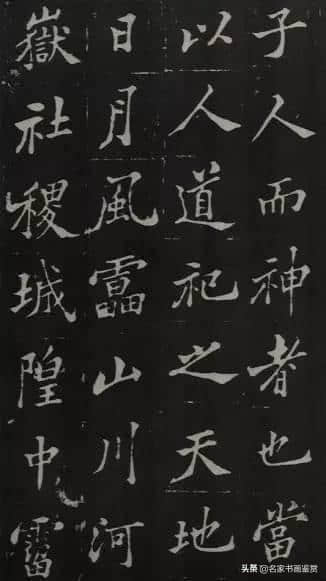 子人而神者也當
以人道祀之天地
日月風靁山川河
嶽社稷城隍中霤
头条@名家书画鉴赏